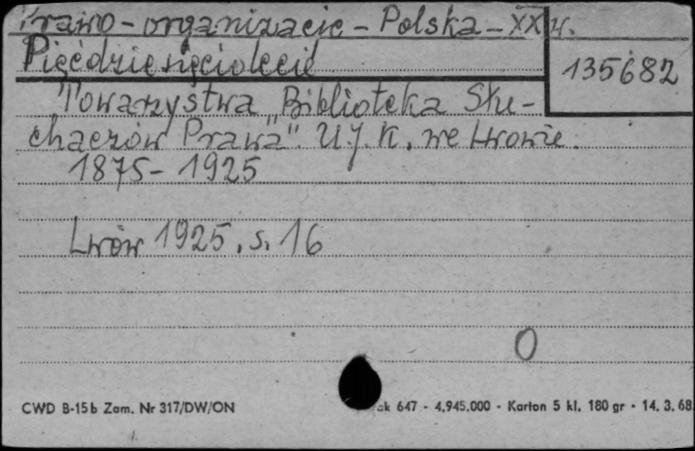 Prawo - organizacje - Polska - XX w.
Pięćdziesięciolecie
135682
Towarzystwa "Biblioteka Słu-
chaczów Prawa" U.J.K. we Lwowie.
1875 - 1925
Lwów 1925, s. 16
0
CWD B-15b Zam. Nr 317/DW/ON
ak 647 - 4.945.000 - Karton 5 kl. 180 gr - 14. 3. 68